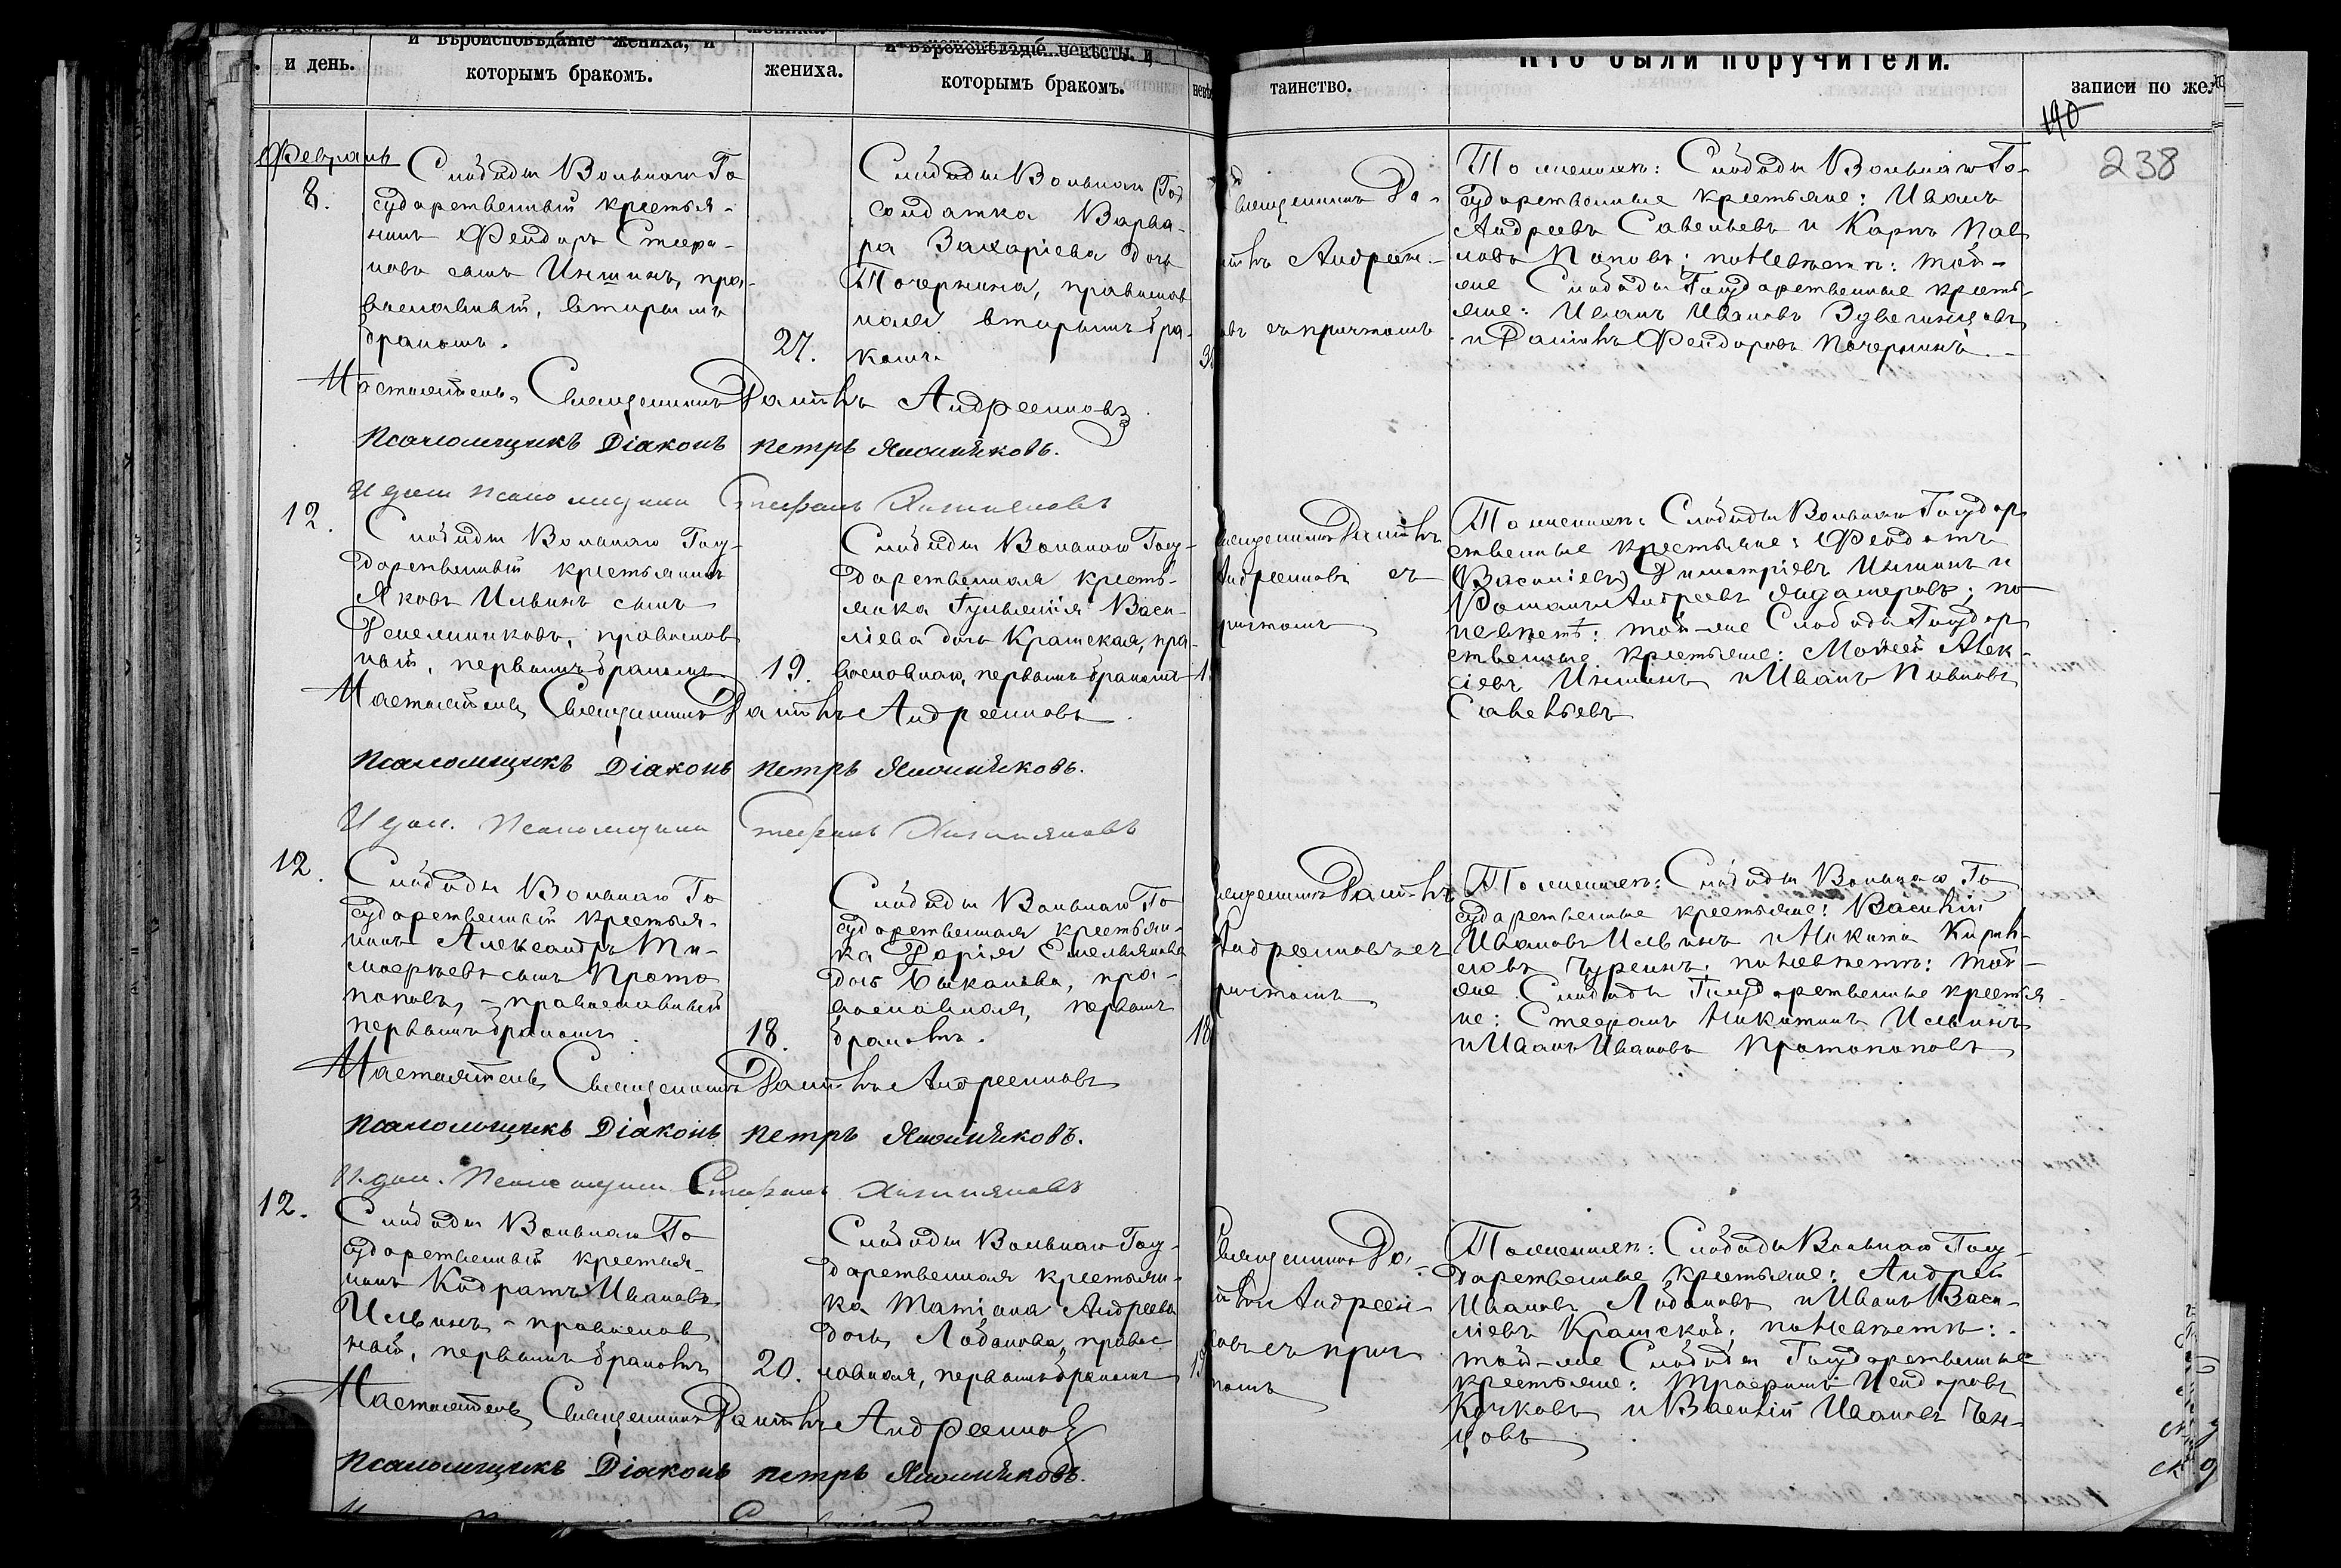 и день.
и вѣроисповѣданіе жениха, и
которымъ бракомъ.
жениха.
и вѣроисповѣданіе невѣсты, и
которымъ бракомъ.
таинство.
Кто были поручители.
записи по же
190
238
Февраль
8.
Слободы Вольнаго Го
сударственный крестья-
нинъ Феодоръ Стефа-
новъ сынъ Иншинъ, пра-
вославный, вторымъ
бракомъ.
27.
Слободы Вольнаго (Го)
солдатка Варва-
ра Захаріева дочь
Почернина, православ
ная вторымъ бра-
комъ.
Священникъ Да-
ніилъ Андреен-
овъ съ причтомъ
По женихѣ: Слободы Вольнаго Го-
сударственные крестьяне: Иванъ
Андреевъ Савельевъ и Карпъ Пав
ловъ Поповъ; по невѣстѣ: той-
же Слободы Государственные кресть-
яне: Иванъ Ивановъ
и Даніилъ Феодоровъ Почернинъ
Настоятель, Священникъ Даніилъ Андреенновъ
Псаломщикъ Діаконъ Петръ
И дол. Псаломщика Стефанъ
12.
Слободы Вольнаго Госу-
дарственный крестьянинъ
Яковъ Ильинъ сынъ
православ
ный, первымъ бракомъ
19.
Слободы Вольнаго Госу-
дарственная кресть-
янка Гулъ Васи-
ліева дочь Крамская, пра-
вославная, первымъ бракомъ
Священникъ Даніилъ
Андреенновъ съ
причтомъ
По женихѣ: Слободы Вольнаго Государ
ственные крестьяне: Феодотъ
(Василіевъ) Димитріевъ Иншинъ и
Романъ Андреевъ по
невѣстѣ: той-же Слободы Государ
ственные крестьяне: Моисей Алек-
сіевъ Иншинъ и Иванъ
Савельевъ
Настоятель, Священникъ Даніилъ Андреенновъ
Псаломщикъ Діаконъ Петръ
И дол. Псаломщика Стефанъ
12.
Слободы Вольнаго Го
сударственный крестья-
нинъ Александръ Ти-
моѳеевъ сынъ Прото
поповъ, - православный
первымъ бракомъ
18.
Слободы Вольнаго Го
сударственная крестьян-
ка Дарія Емельянова
дочь Быканова, пра-
вославная, первымъ
бракомъ.
18
Священникъ Даніилъ
Андреенновъ съ
причтомъ
По женихѣ: Слободы Вольнаго Го
сударственные крестьяне: Василій
Ивановъ Ильинъ и Никита Кирил-
ловъ Чуреинъ; по невѣстѣ: той-
же Слободы Государственные крестья-
не: Стефанъ Никитинъ Ильинъ
и Иванъ Ивановъ Протопоповъ
Настоятель, Священникъ Даніилъ Андреенновъ
Псаломщикъ Діаконъ Петръ
И дол. Псаломщика Стефанъ
12.
Слободы Вольнаго Го
сударственный крестья-
нинъ Кодратъ Ивановъ
Ильинъ - православ
ный, первымъ бракомъ
20.
Слободы Вольнаго Госу-
дарственная крестьян-
ка Татіана Андреева
дочь Лобанова, правос
лавная, первымъ бракомъ
Священникъ Да-
ніилъ Андреен-
новъ съ прич
томъ
По женихѣ: Слободы Вольнаго Госу-
дарственные крестьяне: Андрей
Ивановъ Лобановъ и Иванъ Васи-
ліевъ Крамской; по невѣстѣ:
той-же Слободы Государственные
крестьяне: Трофимъ Исидоровъ
Кучковъ и Василій Ивановъ Чен-
цовъ
Настоятель, Священникъ Даніилъ Андреенновъ
Псаломщикъ Діаконъ Петръ